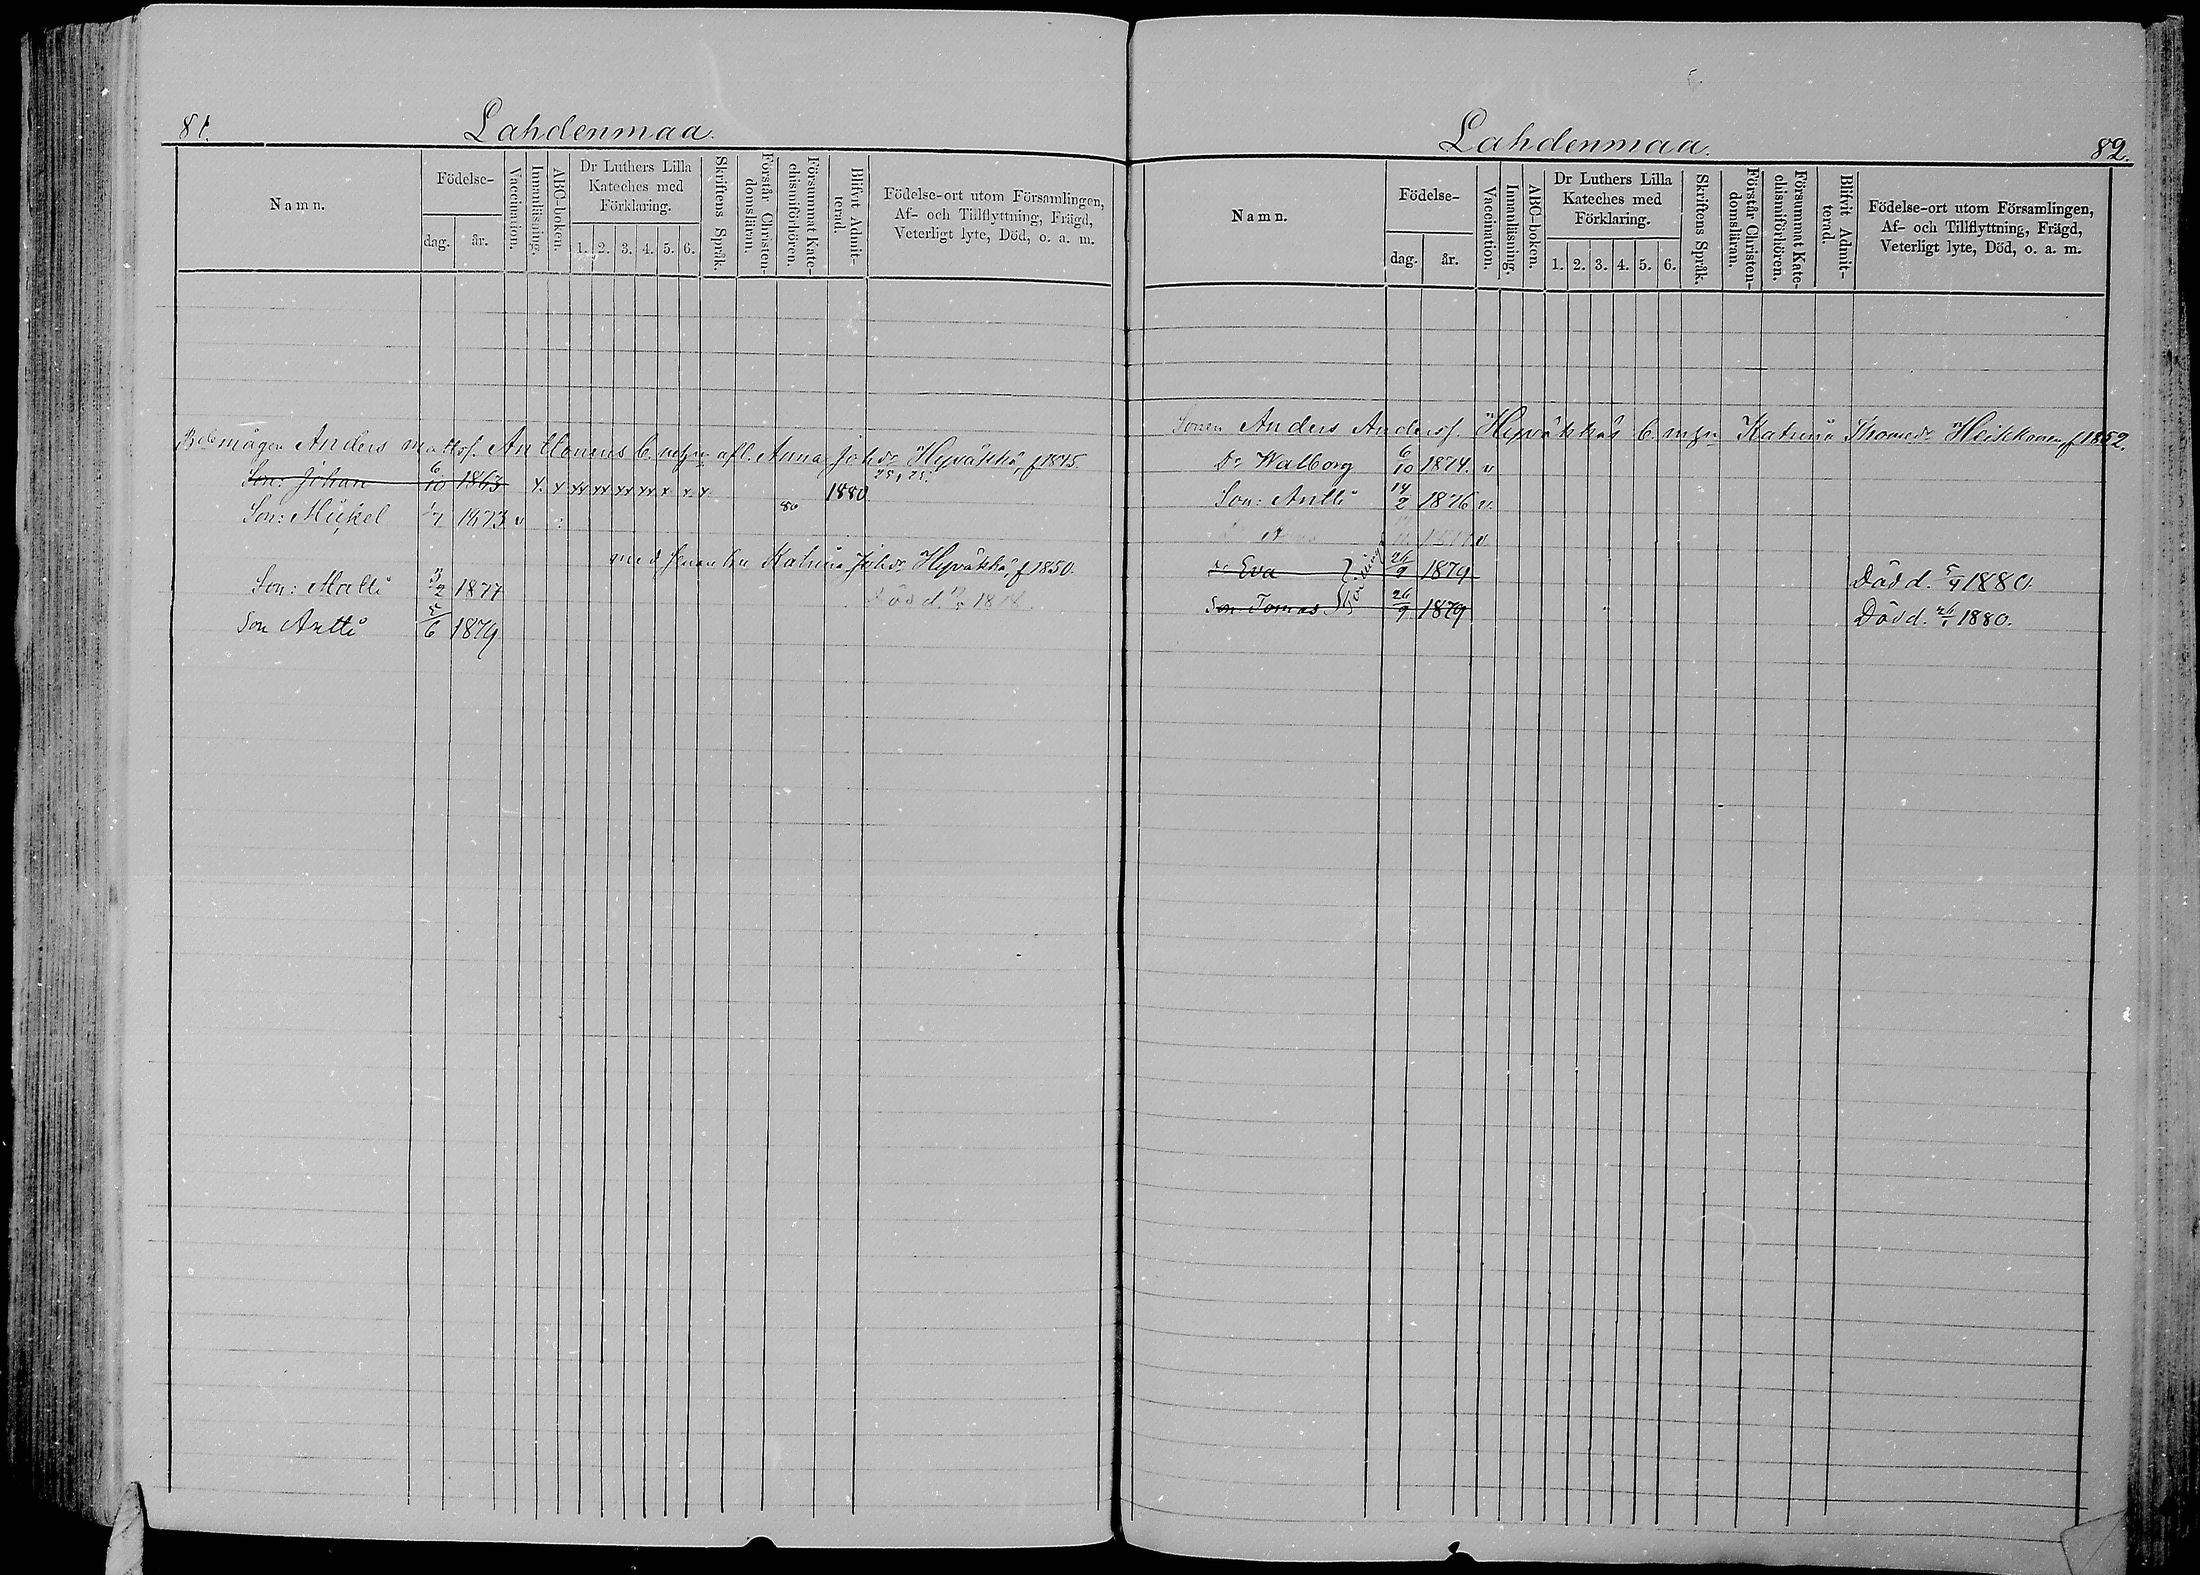 81.
Lahdenmaa.
Namn.
Födelse-
dag.
år.
Vaccination.
Innanläsning.
ABC-boken.
Dr Luthers Lilla
Kateches med
Förklaring.
1. 2. 3. 4. 5. 6.
Skriftens Språk.
Förstår Christen-
domsläran.
Försummat Kate-
chismiförhören.
Blifvit Admit-
terad.
Födelse-ort utom Församlingen,
Af- och Tillflyttning, Frägd,
Veterligt lyte, Död, o. a. m.
mågen Anders Hyväkkä, f 1845.
Son: Johan 6/10 1863 x x xx xx xx xx x x x 80 1880
Son: Mickel 1873 v
Katrina Hyväkkä, f 1850.
Son: Matti 1877
Död d. 1878.
Son Antti 5/6 1879
Lahdenmaa.
82.
Namn.
Födelse-
dag.
år.
Vaccination.
Innanläsning.
ABC-boken.
Dr Luthers Lilla
Kateches med
Förklaring.
1. 2. 3. 4. 5. 6.
Skriftens Språk.
Förstår Christen-
domsläran.
Försummat Kate-
chismiförhören.
Blifvit Admit-
terad.
Födelse-ort utom Församlingen,
Af- och Tillflyttning, Frägd,
Veterligt lyte, Död, o. a. m.
Sonen Anders Anderss. Hyväkkä Katrina Heikkonen f 1852.
Dr Walborg 6/10 1874. v
Son: Antti 14/2 1876 v.
Dr Eva 26/9 1879 Död d. 5/4 1880
Son Tomas 26/9 1879 Död d. 26/1 1880.